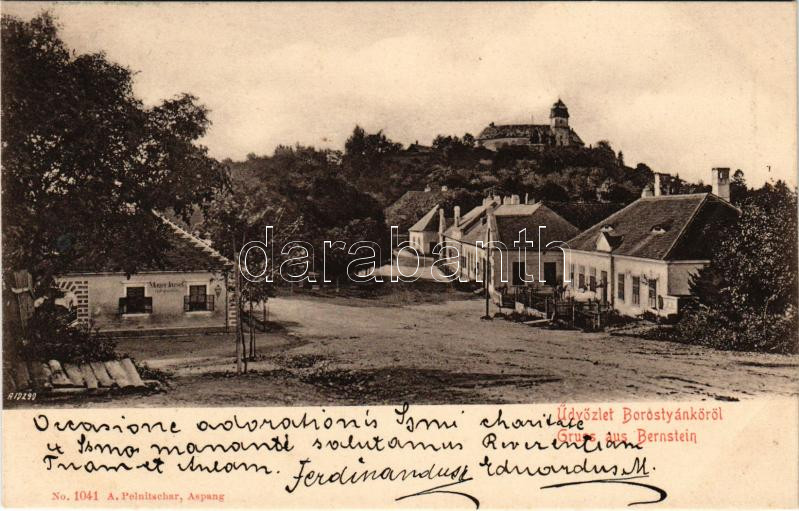 Mayer József
darabanth
A 10290
Üdvözlet Borostyánköről
Gruss aus Bernstein
Occasione adorationis Ssmi charitate
ex Ssmo manante salutamus Reverentiam
Tuam et Aulam. Ferdinandus Eduardus M.
No. 1041 A. Pelnitschar, Aspang